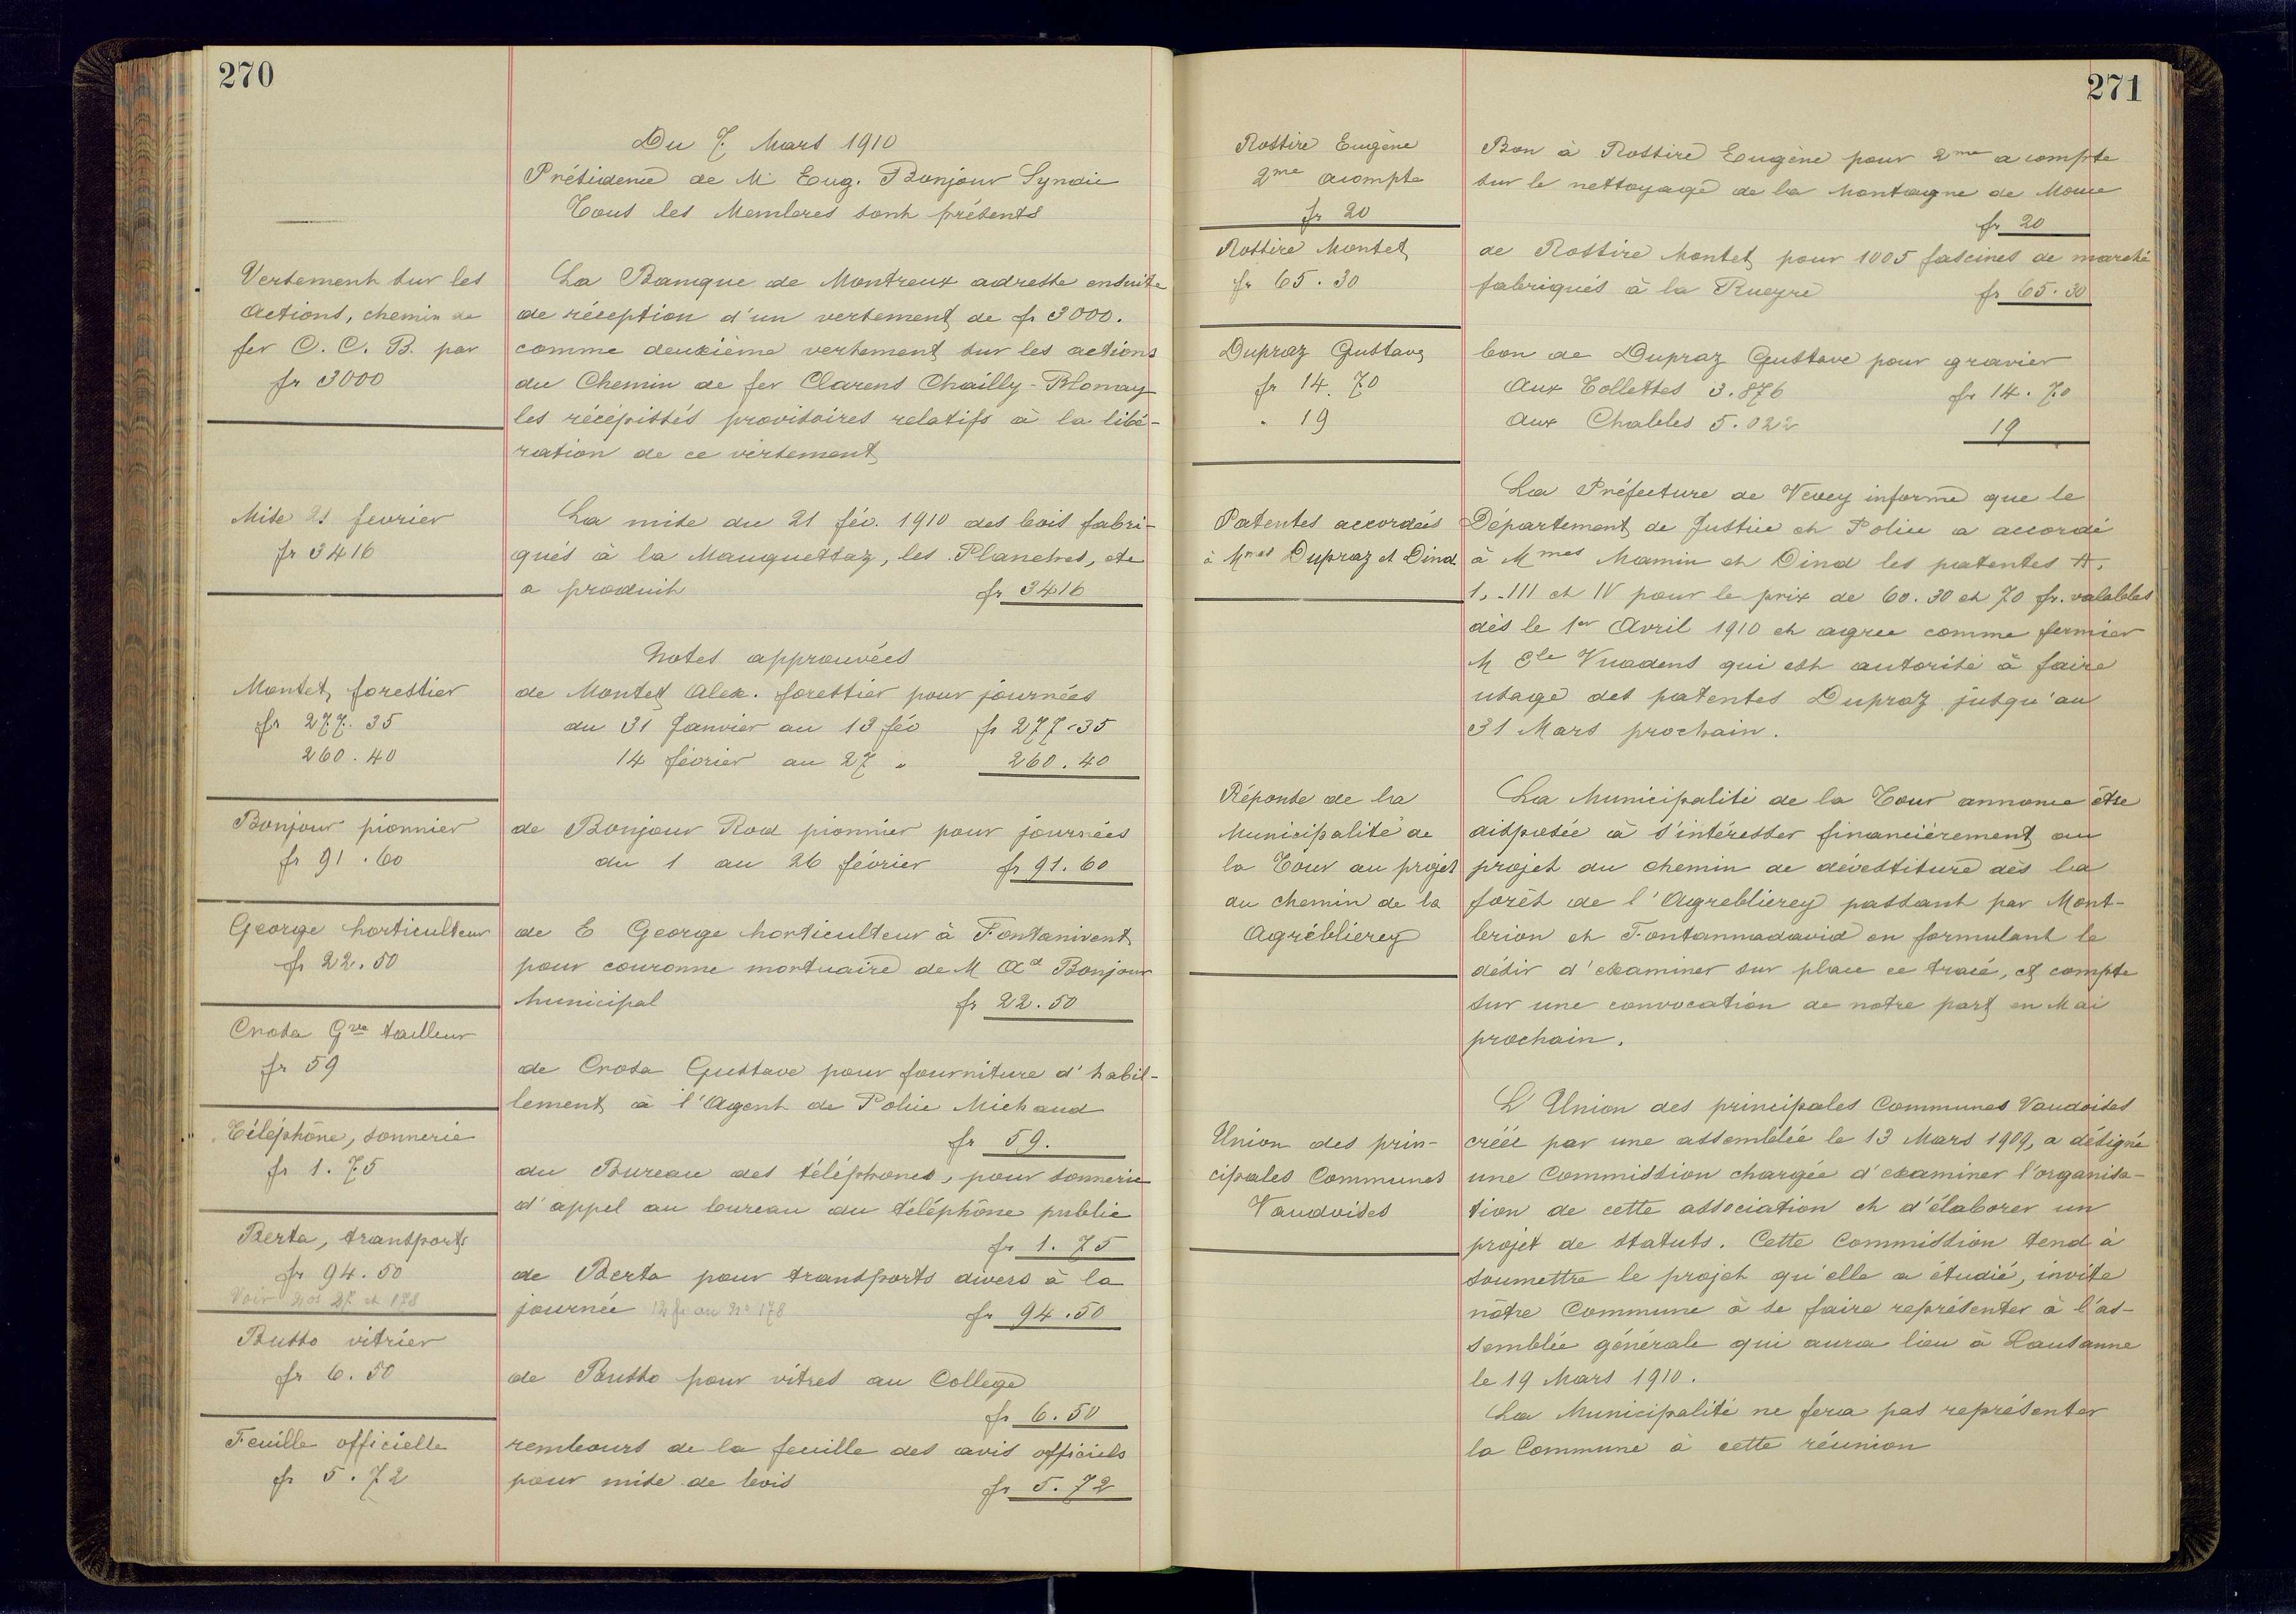 270
Du 7. Mars 1910
Présidence de Mr Eug. Bonjour Syndic
Tous les Membres sont présents
Versement sur les
Actions, chemin de
fer C. C. B. par
fr 3000
La Banque de Montreux adresse ensuite
de réception d'un versement de fr 3000.
comme deuxième versement sur les actions
du Chemin de fer Clarens Chailly-Blonay
les récépissés provisoires relatifs à la libé-
ration de ce versement
Mise 21 fevrier
fr 3416
La mise du 21 fév. 1910 des bois fabri-
qués à la Mauguettaz, les Planches, etc
a produit fr 3416
Notes approuvées
Montet forestier
fr 277. 35
260. 40
de Montet Alex. forestier pour journées
du 31 Janvier au 13 fév fr 277.35
14 février au 27 " 260.40
Bonjour pionnier
fr 91.60
de Bonjour Rod pionnier pour journées
du 1 au 26 février fr 91.60
George horticulteur
fr 22.50
de E George horticulteur à Fontanivent
pour couronne mortuaire de M Ad Bonjour
Municipal fr 22.50
Crosa Gve tailleur
fr 59
de Crosa Gustave pour fourniture d'habil-
lement à l'Agent de Police Michaud
fr 59.
Téléphône, sonnerie
fr 1.75
du Bureau des téléphones, pour sonnerie
d'appel au bureau du téléphône public
fr 1.75
Berta, transports
fr 94.50
Voir nos 27 et 178
de Berta pour transports divers à la
journée 12 fr au No 178 fr 94.50
Busso vitrier
fr 6.50
de Busso pour vitres au Collège
fr 6.50
Feuille officielle
fr 5.72
rembours de la feuille des avis officiels
pour mise de bois fr 5.72
271
Rossire Eugène
2me acompte
fr 20
Bon à Rossire Eugène pour 2me acompte
sur le nettoyage de la Montagne de Mouce
fr 20
Rossire Montet
fr 65.30
de Rossire Montet pour 1005 fascines de marché
fabriqués à la Rueyre fr 65.30
Dupraz Gustave
fr 14.70
" 19
bon de Dupraz Gustave pour gravier
Aux Tollettes 3.876 fr 14.70
Aux Chables 5.022 19
Patentes accordées
à Mmes Dupraz et Dind
La Préfecture de Vevey informe que le
Département de Justice et Police a accordé
à Mmes Mamin et Dind les patentes A.
1. III et IV pour le prix de 60. 30 et 70 fr. valables
dès le 1er Avril 1910 et agree comme fermier
M Cle Vuadens qui est autorisé à faire
usage des patentes Dupraz jusqu'au
31 Mars prochain.
Réponse de la
Municipalité de
la Tour au projet
du chemin de la
Agréblierey
La Municipalité de la Tour annonce être
disposée à s'intéresser financièrement au
projet du chemin de dévestiture dès la
forêt de l'Agreblierey passant par Mont-
brion et Fontannadavid en formulant le
désir d'examiner sur place ce tracé, et compte
sur une convocation de notre part en Mai
prochain.
Union des prin-
cipales Communes
Vaudoises
L'Union des principales Communes Vaudoises
créée par une assemblée le 13 Mars 1909, a désigné
une Commission chargée d'examiner l'organisa-
tion de cette association et d'élaborer un
projet de statuts. Cette Commission tend à
soumettre le projet qu'elle a étudié, invite
nôtre Commune à se faire représenter à l'as-
semblée générale qui aura lieu à Lausanne
le 19 Mars 1910.
La Municipalité ne fera pas représenter
la Commune à cette réunion